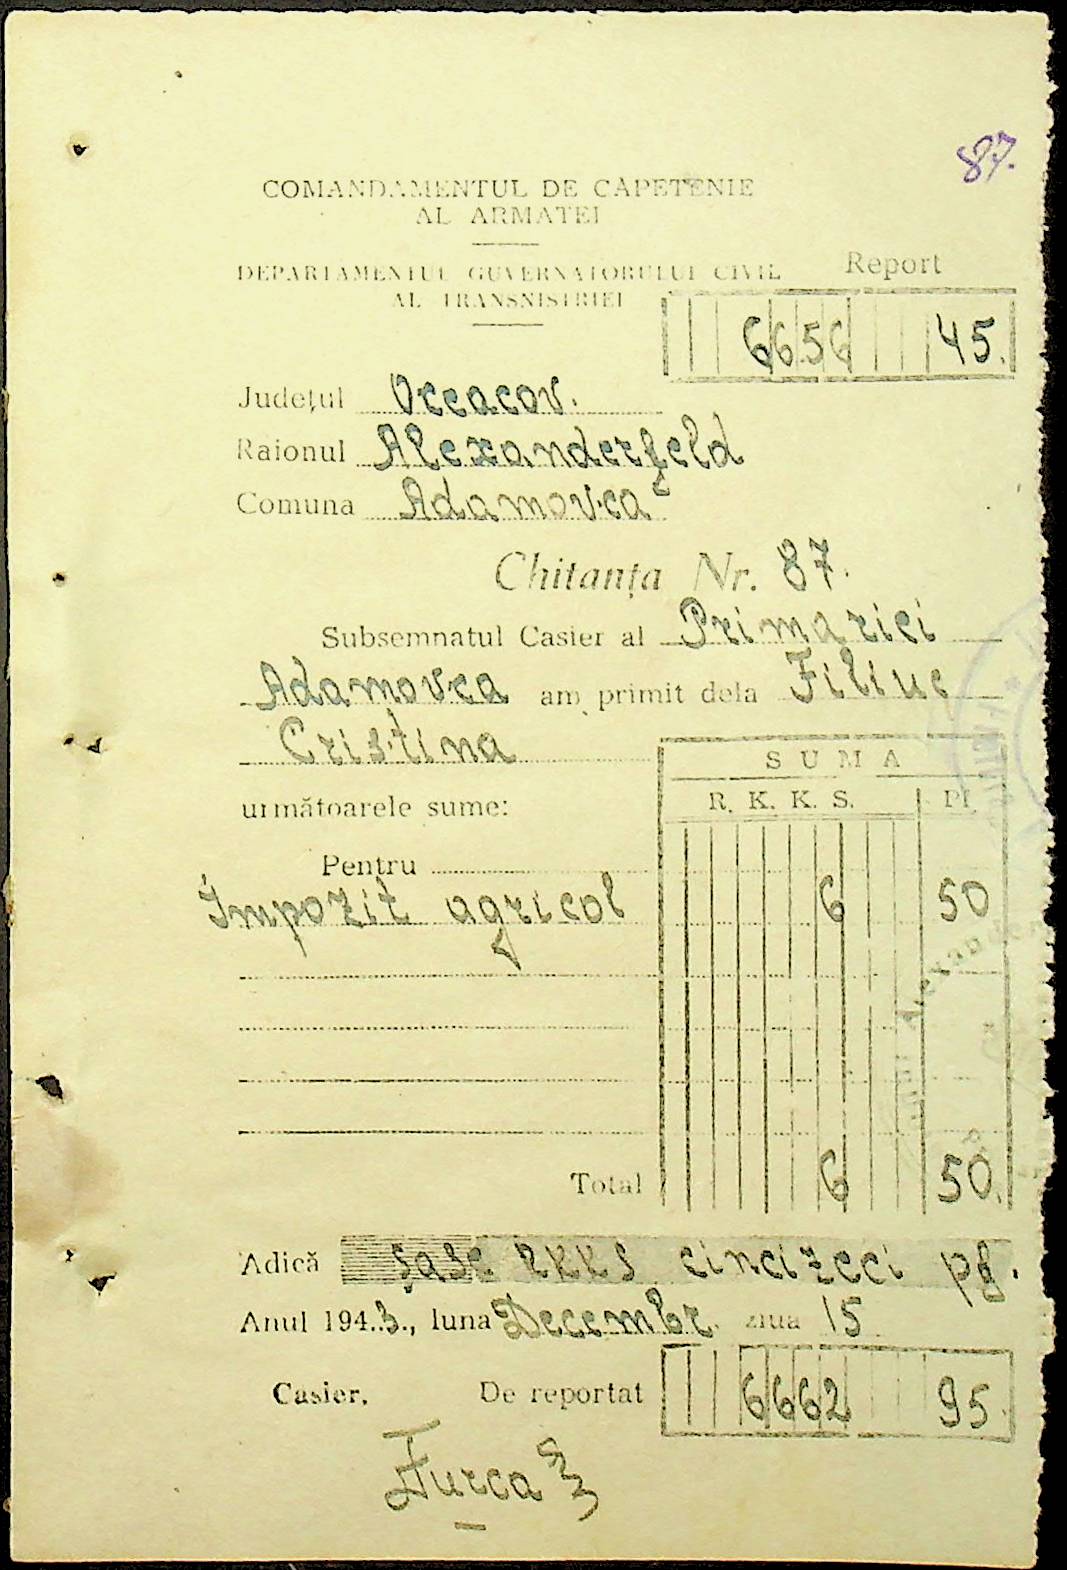 87.
COMANDAMENTUL DE CĂPETENIE
AL ARMATEI
DEPARTAMENTUL GUVERNATORULUI CIVIL
AL TRANSNISTRIEI
Report
6656 45.
Județul Oceacov.
Raionul Alexanderfeld
Comuna Adamovca
Chitanța Nr. 87.
Subsemnatul Casier al Primariei
Adamovca am primit dela Filiuc
Cristina
următoarele sume:
SUMA
R. K. K. S. Pf
Pentru
Impozit agricol 6 50
Total 6 50.
Adică șase RKKS cincizeci pf.
Anul 194.3., luna Decembr. ziua 15
Casier, De reportat 6662 95.
Furca